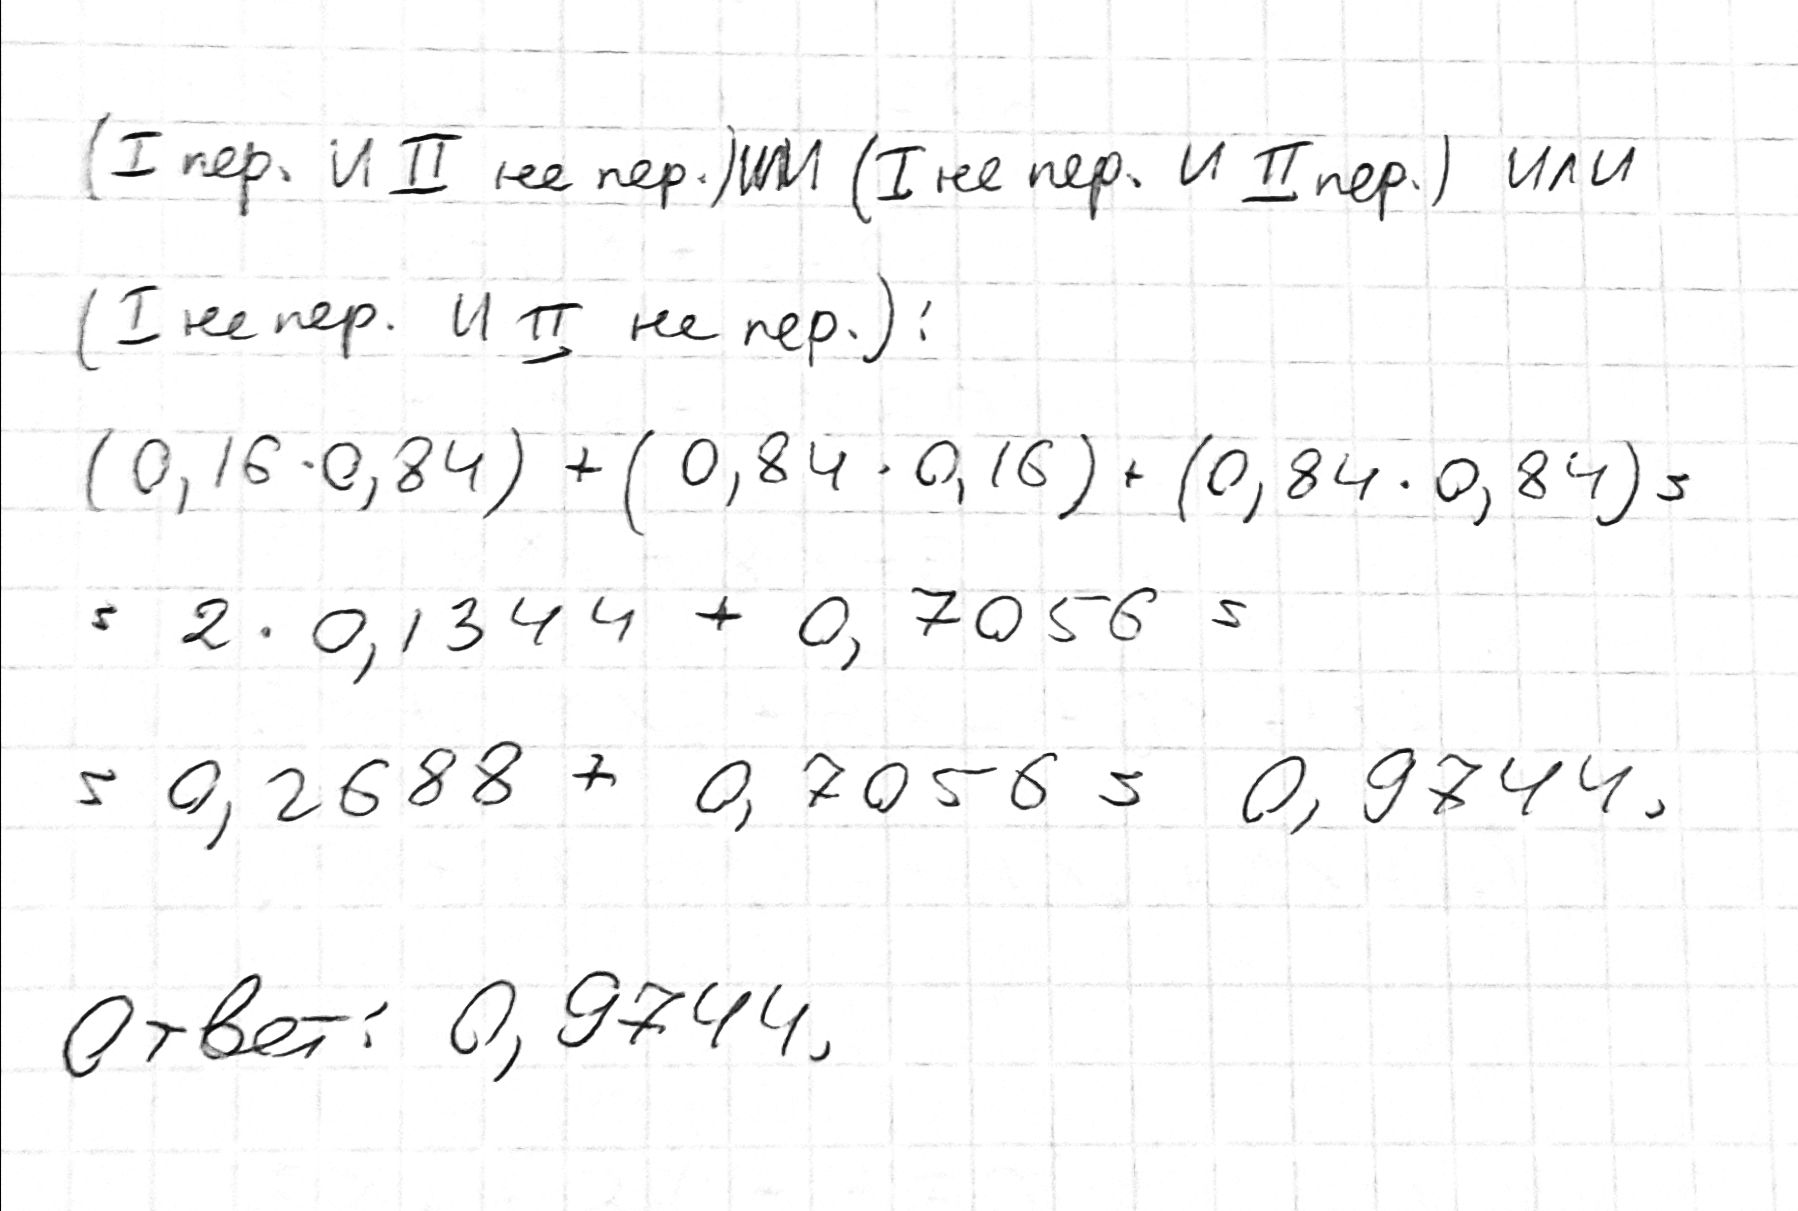 (I пер. И II не пер.) ИЛИ (I не пер. И II пер.) ИЛИ
(I не пер. И II не пер.):
(0,16·0,84) + (0,84·0,16) + (0,84·0,84) =
= 2·0,1344 + 0,7056 =
= 0,2688 + 0,7056 = 0,9744.
Ответ: 0,9744.